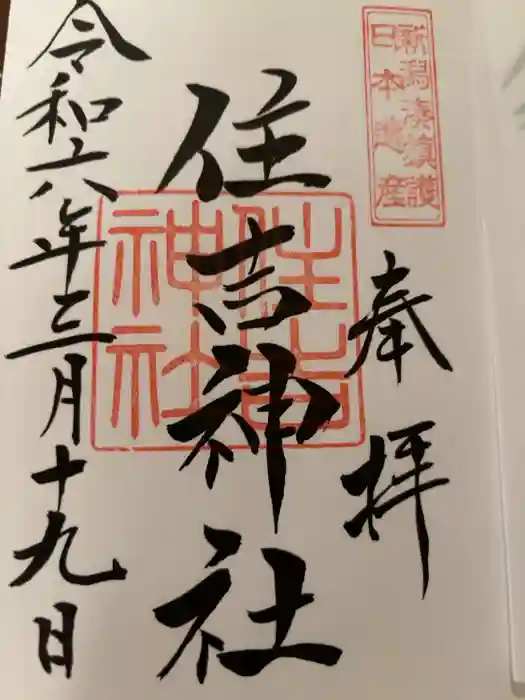 新潟湊鎮護
日本遺産
奉拝
住吉神社
住吉神社
令和六年三月十九日